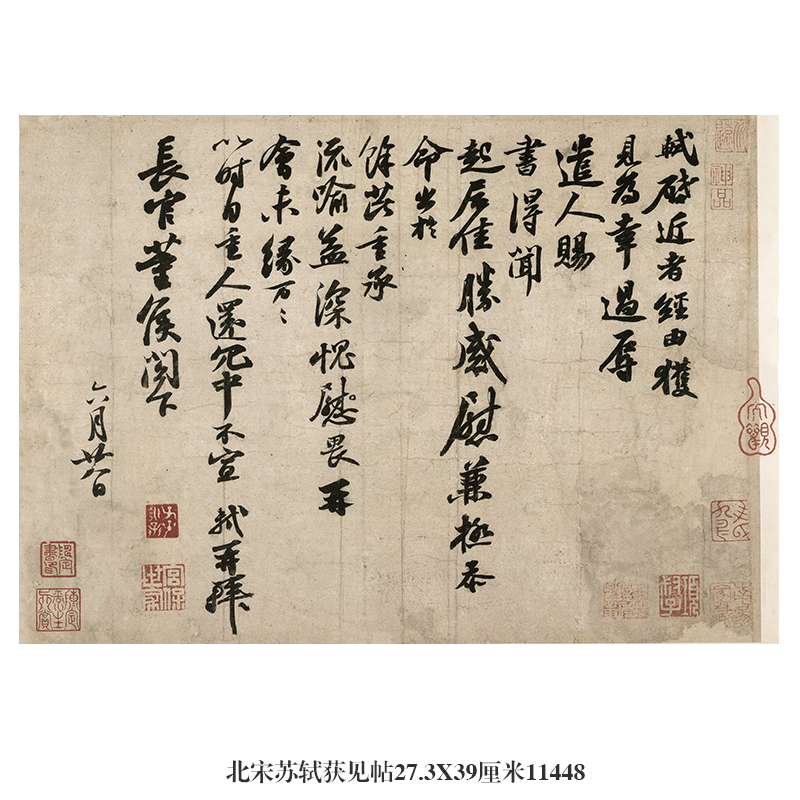 軾啓近者經由獲
見為幸過辱
遣人賜
書得聞
起居佳勝感慰兼極忝
命出於
餘芘重承
流喻益深愧慰畏再
會未緣万〻
以时自重人還冗中不宣 軾再拜
長官董侯閣下
六月廿八日
北宋苏轼获见帖27.3X39厘米11448